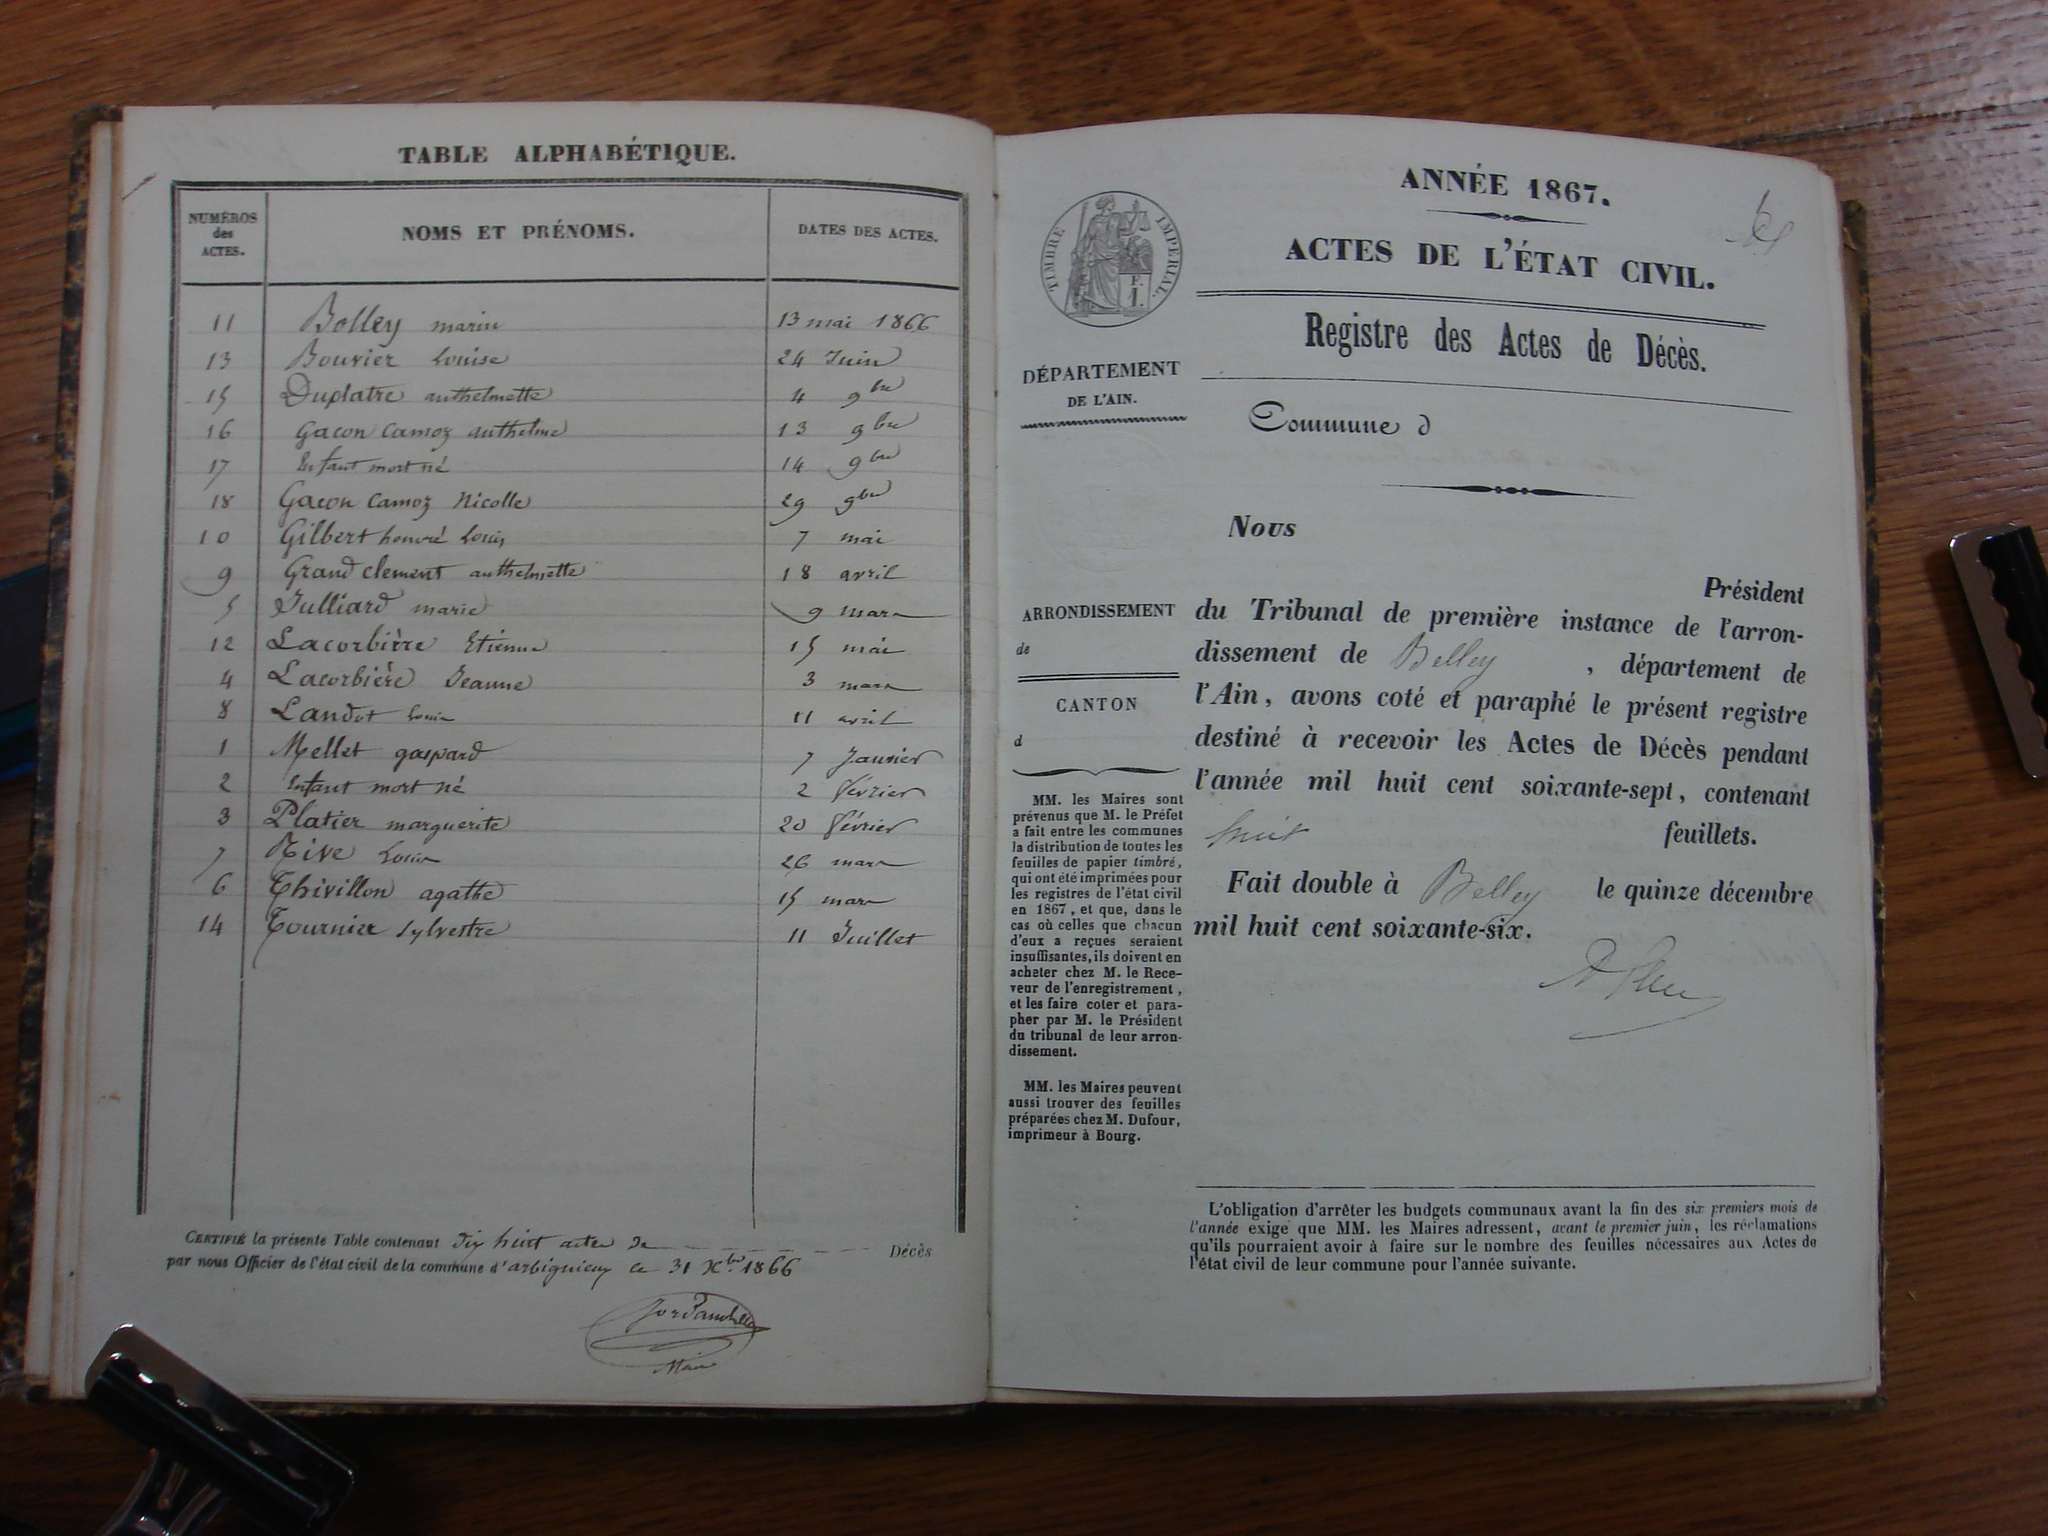 TABLE ALPHABÉTIQUE.
NUMÉROS des ACTES. NOMS ET PRÉNOMS. DATES DES ACTES.
11 Bolley marin 13 mai 1866
13 Bouvier Louise 24 Juin
15 Duplatre anthelmette 4 9bre
16 Gacon Camoz anthelme 13 9bre
17 Enfant mort né 14 9bre
18 Gacon Camoz Nicolle 29 9bre
10 Gilbert honoré Louis 7 mai
9 Grand clement anthelmette 18 avril
5 Julliard marie 9 mars
12 Lacorbière Etienne 15 mai
4 Lacorbière Jeanne 3 mars
8 Landot Louis 11 avril
1 Mellet gaspard 7 Janvier
2 Enfant mort né 2 février
3 Platier marguerite 20 février
7 Rive Louis 26 mars
6 Thivillon agathe 15 mars
14 Tournier Sylvestre 11 Juillet
CERTIFIÉ la présente Table contenant dix huit actes de Décès
par nous Officier de l'état civil de la commune d'arbignieu ce 31 Xbre 1866
Maire
ANNÉE 1867.
ACTES DE L'ÉTAT CIVIL.
TIMBRE IMPÉRIAL.
F.
1.
Registre des Actes de Décès.
DÉPARTEMENT
DE L'AIN.
Commune d
Nous
Président
du Tribunal de première instance de l'arron-
dissement de Belley , département de
l'Ain, avons coté et paraphé le présent registre
destiné à recevoir les Actes de Décès pendant
l'année mil huit cent soixante-sept, contenant
huit feuillets.
Fait double à Belley le quinze décembre
mil huit cent soixante-six.
ARRONDISSEMENT
de
CANTON
d
MM. les Maires sont
prévenus que M. le Préfet
a fait entre les communes
la distribution de toutes les
feuilles de papier timbré,
qui ont été imprimées pour
les registres de l'état civil
en 1867, et que, dans le
cas où celles que chacun
d'eux a reçues seraient
insuffisantes, ils doivent en
acheter chez M. le Rece-
veur de l'enregistrement,
et les faire coter et para-
pher par M. le Président
du tribunal de leur arron-
dissement.
MM. les Maires peuvent
aussi trouver des feuilles
préparées chez M. Dufour,
imprimeur à Bourg.
L'obligation d'arrêter les budgets communaux avant la fin des six premiers mois de
l'année exige que MM. les Maires adressent, avant le premier juin, les réclamations
qu'ils pourraient avoir à faire sur le nombre des feuilles nécessaires aux Actes de
l'état civil de leur commune pour l'année suivante.